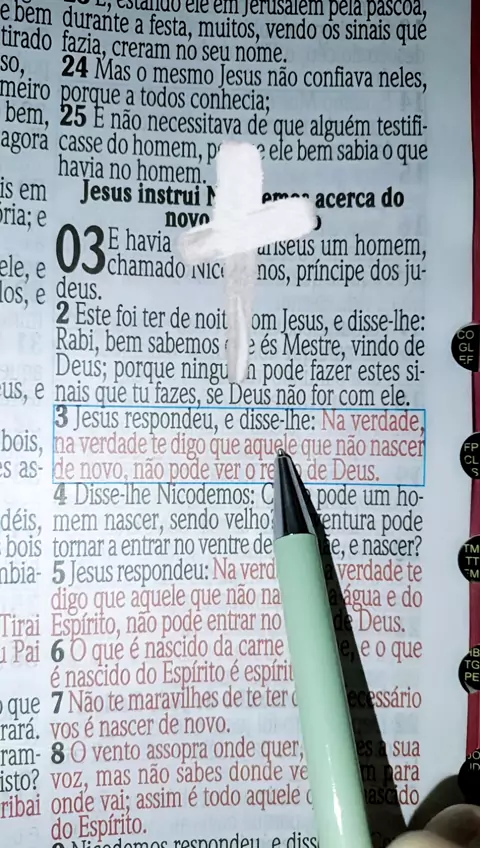 E, estando ele em Jerusalém pela páscoa,
durante a festa, muitos, vendo os sinais que
fazia, creram no seu nome.
24 Mas o mesmo Jesus não confiava neles,
porque a todos conhecia;
25 E não necessitava de que alguém testifi-
casse do homem, ele bem sabia o que
havia no homem.
Jesus instrui acerca do
novo
03 E havia um homem,
chamado príncipe dos ju-
deus.
2 Este foi ter de com Jesus, e disse-lhe:
Rabi, bem sabemos és Mestre, vindo de
Deus; porque pode fazer estes si-
nais que tu fazes, se Deus não for com ele.
3 Jesus respondeu, e disse-lhe: Na verdade,
na verdade te digo que aquele que não nascer
de novo, não pode ver o de Deus.
4 Disse-lhe Nicodemos: pode um ho-
mem nascer, sendo velho? pode
tornar a entrar no ventre de e nascer?
5 Jesus respondeu: Na verdade te
digo que aquele que não água e do
Espírito, não pode entrar no Deus.
6 O que é nascido da carne e o que
é nascido do Espírito é
7 Não te maravilhes de te ter
vos é nascer de novo.
8 O vento assopra onde quer, a sua
voz, mas não sabes donde para
onde vai; assim é todo aquele
do Espírito.
Nicodemos respondeu, e
e bem
tirado
so,
meiro
bem,
agora
is em
ria; e
ele, e
los, e
us, e
bois,
es as-
déis,
bois
mbia-
Tirai
u Pai
o que
rará.
ram-
isto?
ribai
CO
GL
EF
FP
CL
TM
TT
TG
PE